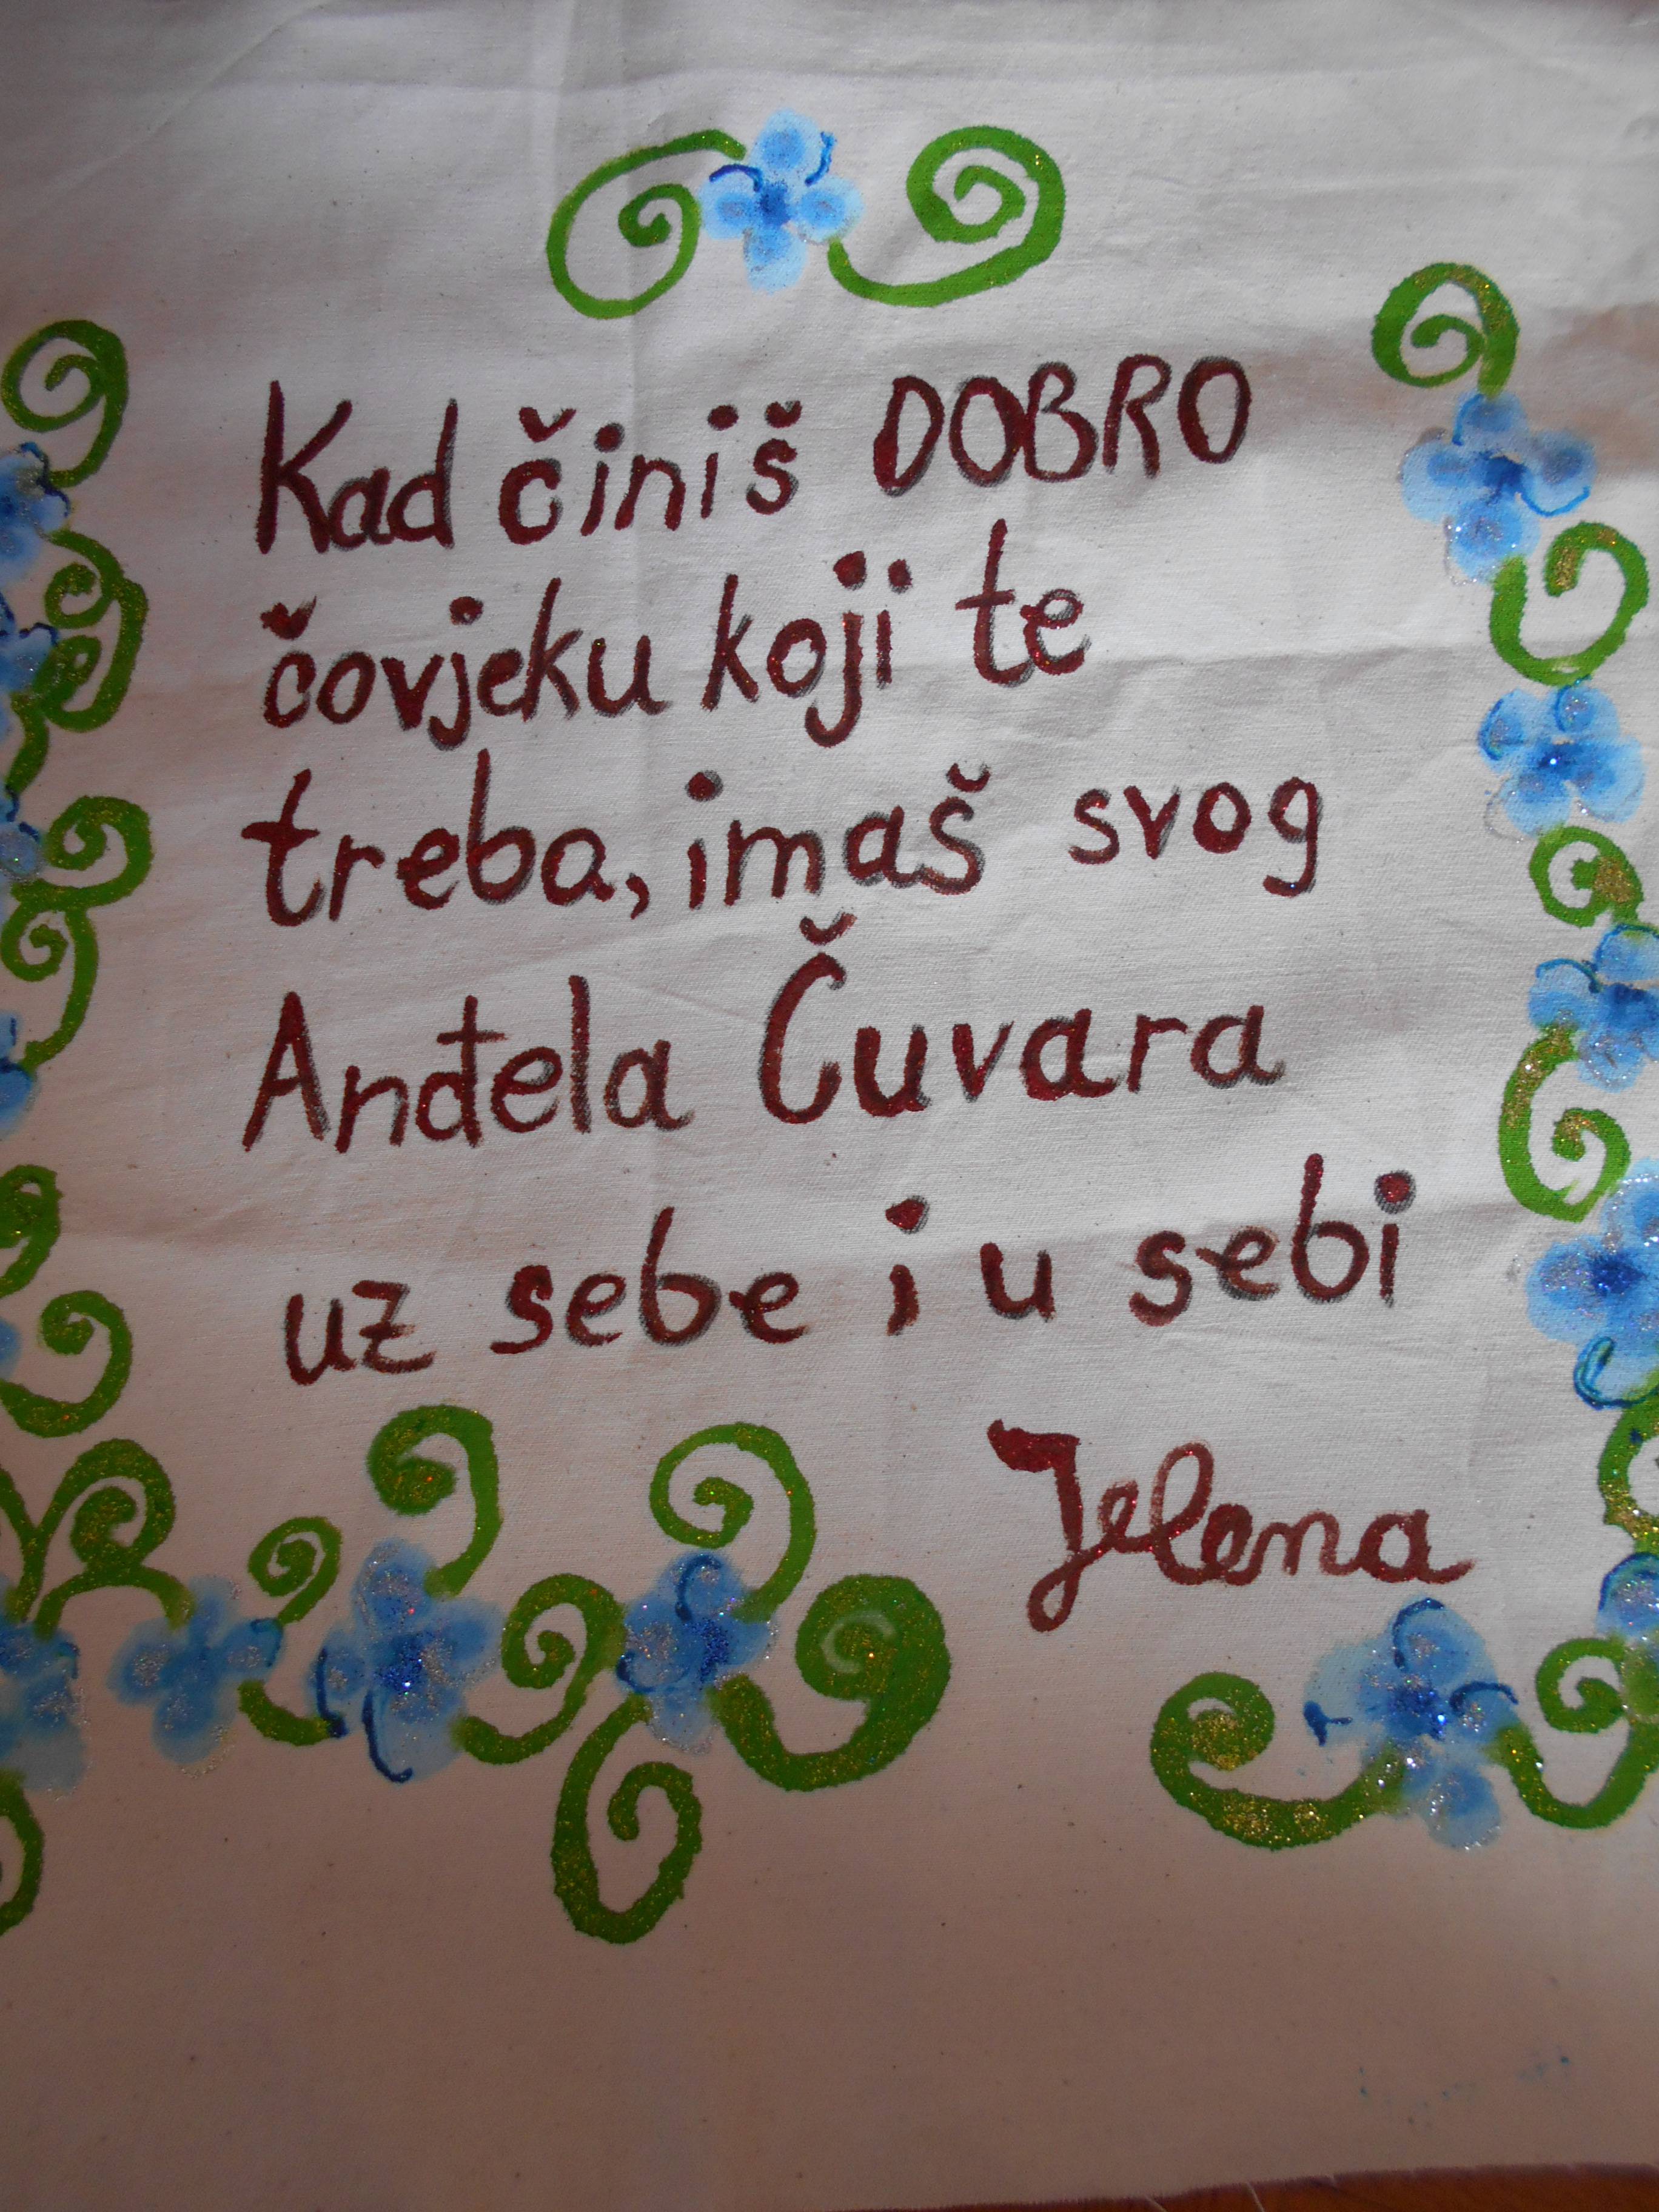 Kad činiš DOBRO
čovjeku koji te
treba, imaš svog
Anđela Čuvara
uz sebe i u sebi
Jelena